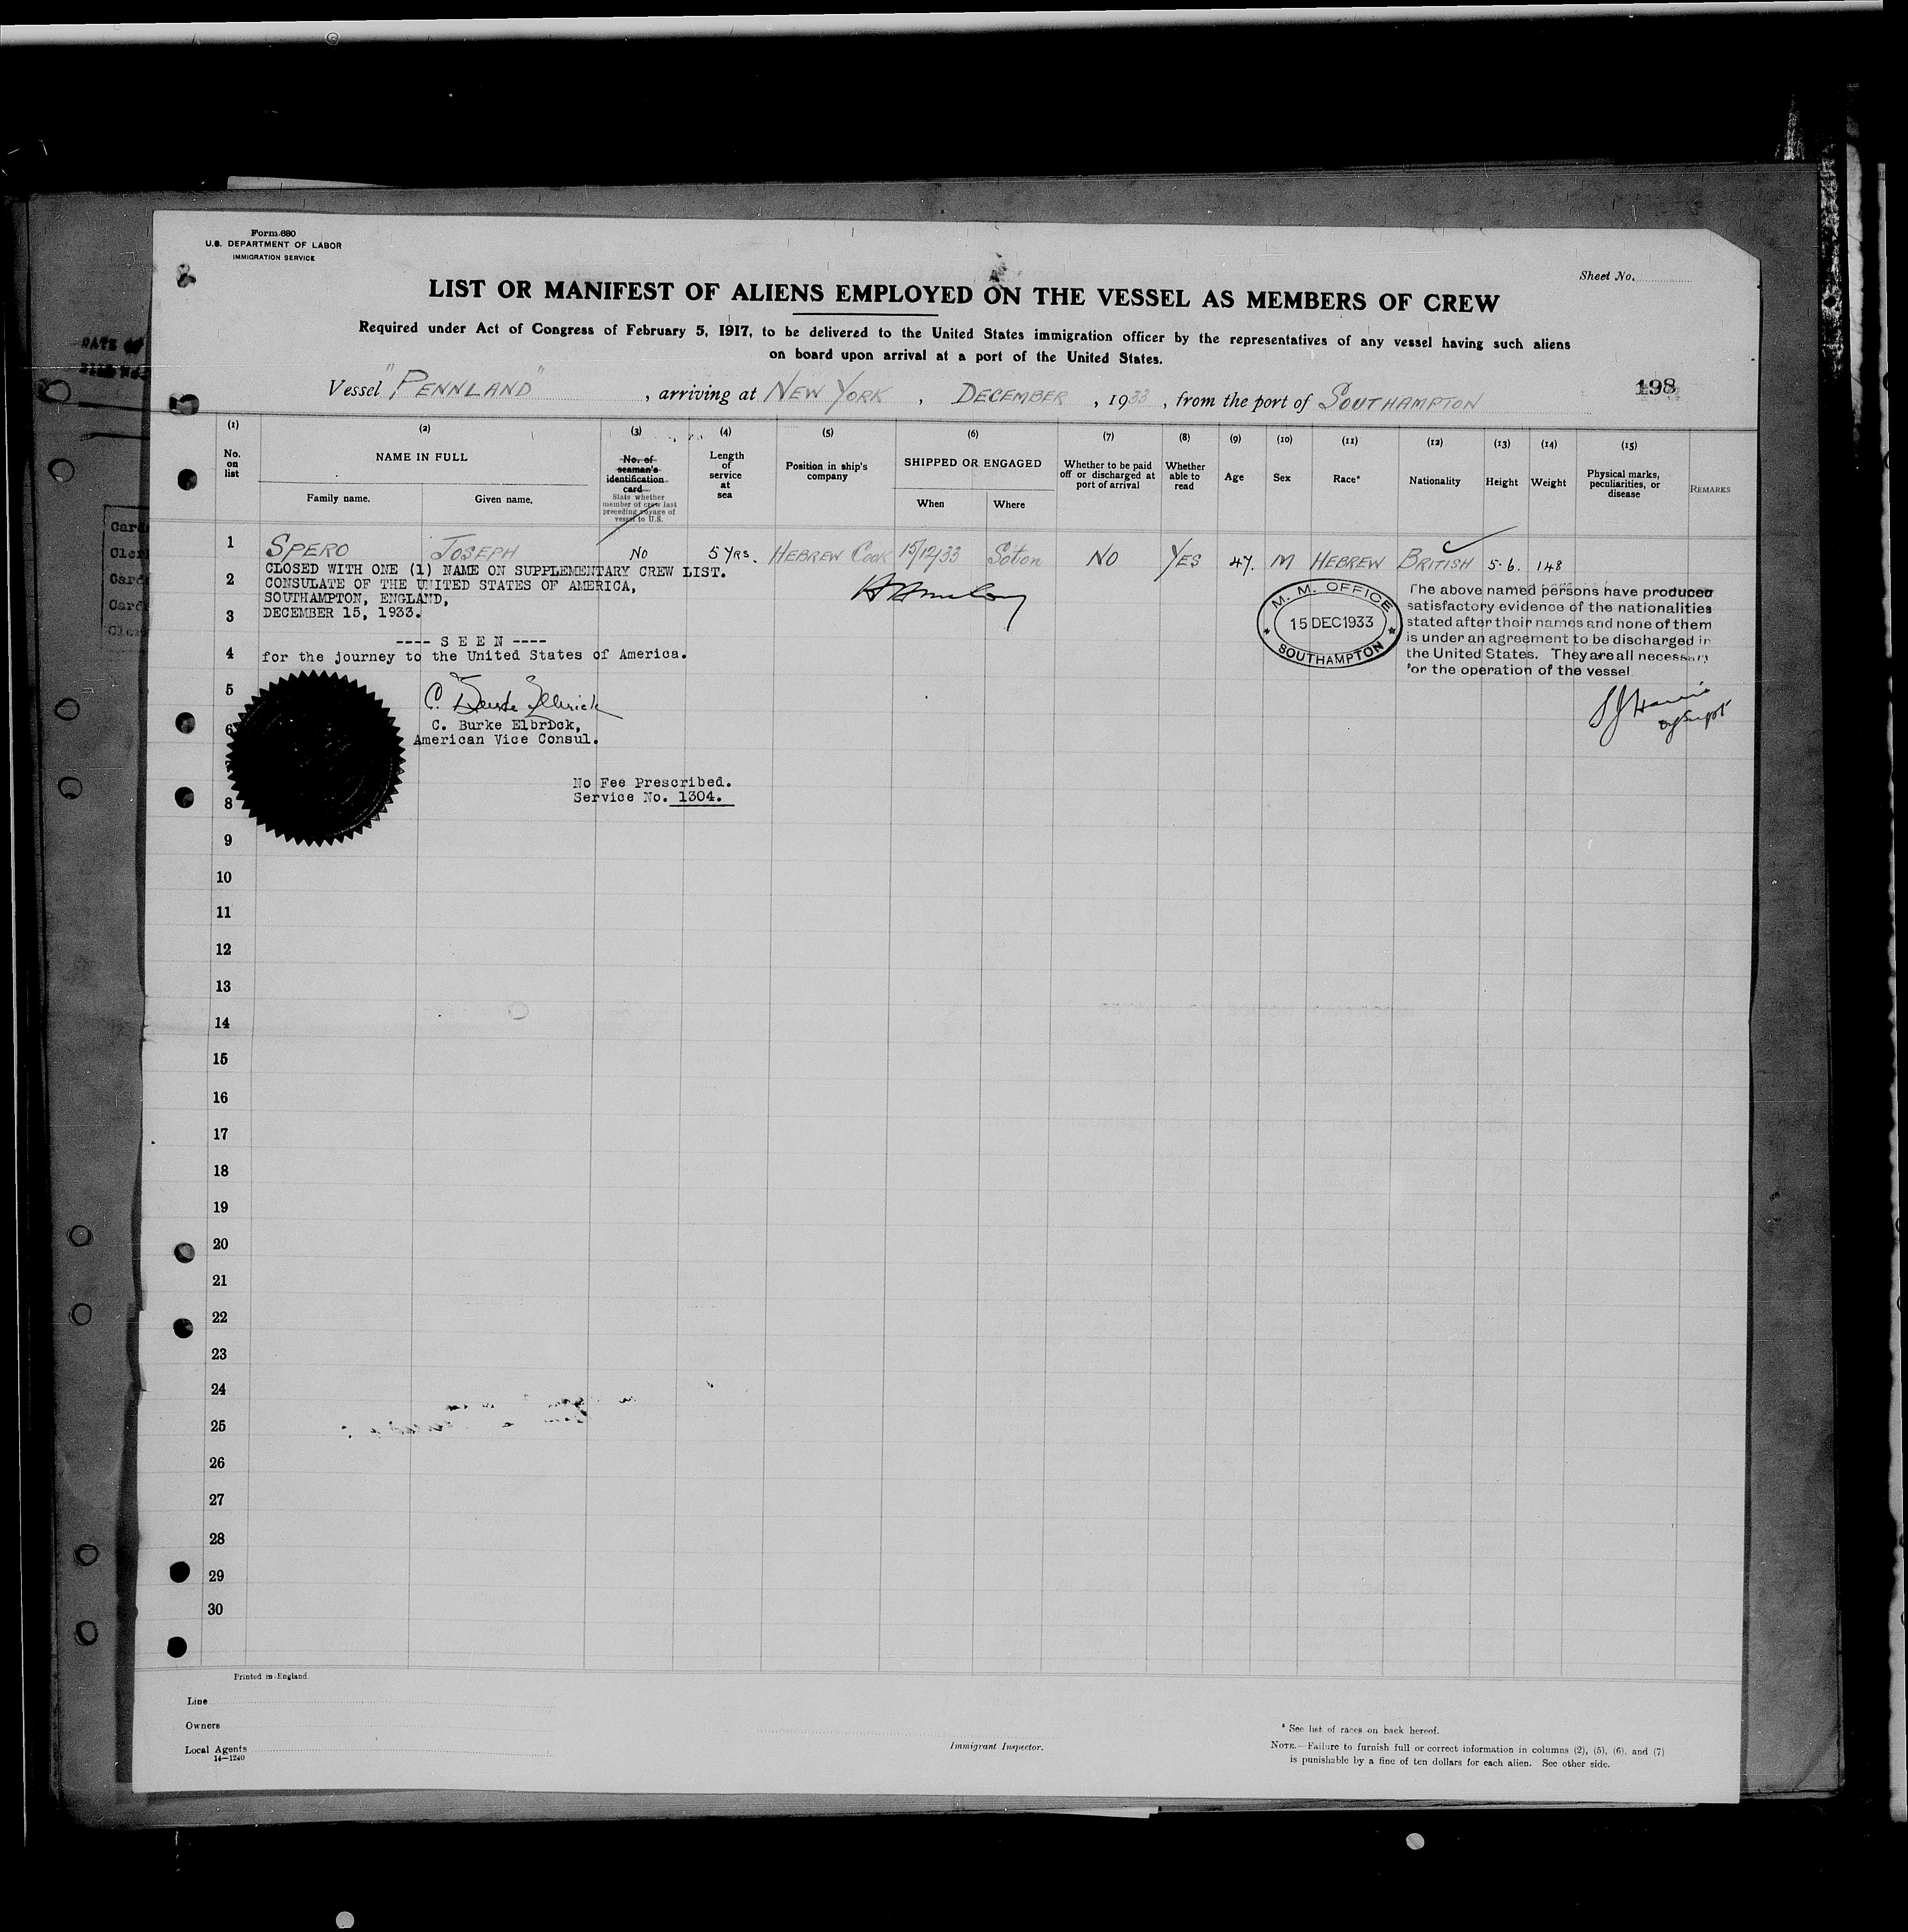 Form 680
U.S. DEPARTMENT OF LABOR
IMMIGRATION SERVICE
Sheet No.
LIST OR MANIFEST OF ALIENS EMPLOYED ON THE VESSEL AS MEMBERS OF CREW
Required under Act of Congress of February 5, 1917, to be delivered to the United States immigration officer by the representatives of any vessel having such aliens
on board upon arrival at a port of the United States.
Vessel "PENNLAND", arriving at NEW YORK, DECEMBER, 1933, from the port of SOUTHAMPTON
198
(1) (2) (3) (4) (5) (6) (7) (8) (9) (10) (11) (12) (13) (14) (15)
No. on list
NAME IN FULL
Family name. Given name.
No. of seaman's identification card
State whether member of crew last preceding voyage of vessel to U.S.
Length of service at sea
Position in ship's company
SHIPPED OR ENGAGED
When Where
Whether to be paid off or discharged at port of arrival
Whether able to read
Age
Sex
Race*
Nationality
Height
Weight
Physical marks, peculiarities, or disease
REMARKS
1 SPERO JOSEPH NO 5 YRS. HEBREW COOK 15/12/33 Soton NO YES 47. M HEBREW BRITISH 5.6. 148
CLOSED WITH ONE (1) NAME ON SUPPLEMENTARY CREW LIST.
2 CONSULATE OF THE UNITED STATES OF AMERICA,
SOUTHAMPTON, ENGLAND,
3 DECEMBER 15, 1933.
---- S E E N ----
4 for the journey to the United States of America.
M. M. OFFICE
15 DEC 1933
SOUTHAMPTON
The above named persons have produced
satisfactory evidence of the nationalities
stated after their names and none of them
is under an agreement to be discharged in
the United States. They are all necessary
for the operation of the vessel
5
C. Burke Elbrick
6 C. Burke Elbrick,
American Vice Consul.
No Fee Prescribed.
8 Service No. 1304.
9
10
11
12
13
14
15
16
17
18
19
20
21
22
23
24
25
26
27
28
29
30
Printed in England
Line
Owners
Local Agents
14—1240
Immigrant Inspector.
* See list of races on back hereof.
NOTE.—Failure to furnish full or correct information in columns (2), (5), (6), and (7)
is punishable by a fine of ten dollars for each alien. See other side.